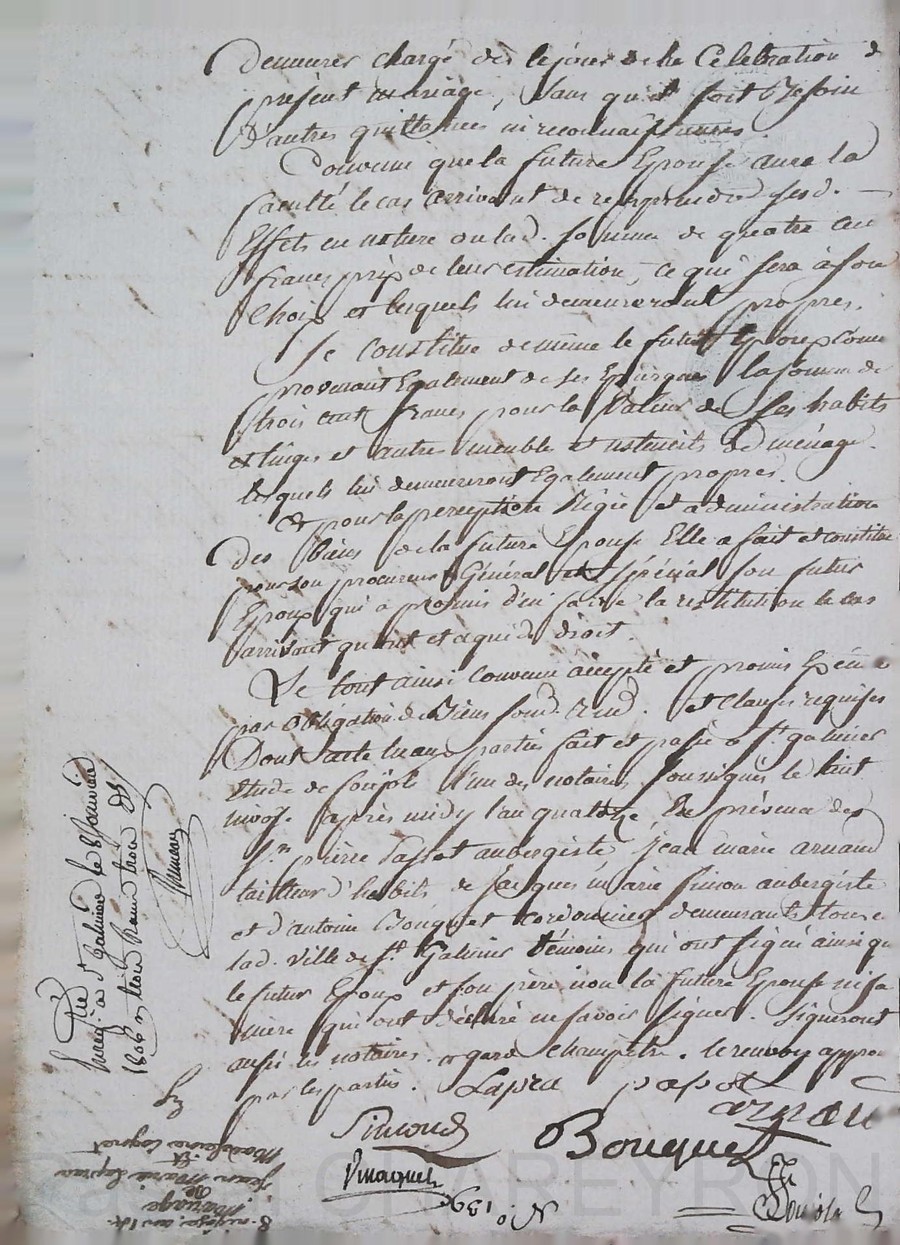 demeurer chargé dès le jour de la Célébration d
présent mariage, sans qu'il soit Besoin
d'autres quittances ni reconnaissances
Convenu que la future Epouse aura la
faculté le cas arrivant de reprendre sesd.
Effets en nature ou lad. somme de quatre cen
francs prix de leur estimation, ce qui sera à son
Choix et lesquels lui demeureront propres.
Se constitue de même le futur Epoux comme
provenant Egalement de ses Epargnes la somme de
trois cent francs pour la valeur de ses habits
et linges et autres meuble et ustencils de ménage
lesquels lui demeureront Egalement propres.
Et pour la perception Régie et administration
des biens de la future Epouse Elle a fait et constitue
pour son procureur Général et spécial son futur
Epoux qui a promis d'en faire la restitution le cas
arrivant quant et a qui de droit.
Le tout ainsi convenu accepté et promis
par obligation de Biens et Clauses requises
Dont acte lu aux parties fait et passé à St. galmier
Etude de l'un des notaires soussignés le huit
nivose après midy l'an quatorze, En présence des
Srs. pierre aubergiste, Jean marie arnaud
tailleur d'habits de Jacques marie Simon aubergiste
et d'antoine Bouquet cordonnier demeurants tous e
lad. ville de St. Galmier témoins qui ont signé ainsi qu
le futur Epoux et son frère non la future Epouse ni sa
mère qui ont déclaré ne savoir signer. Signeront
aussi les notaires. le renvoy approu
par les parties. Lapra
arnau
Simond Bouquet
No. 139
Enreg. à St Galmier le 8 Janvier
1806
8. nivose an 14.
Mariage
De
Jean Marie Lapra
Et
Madeleine
CHAREYRON